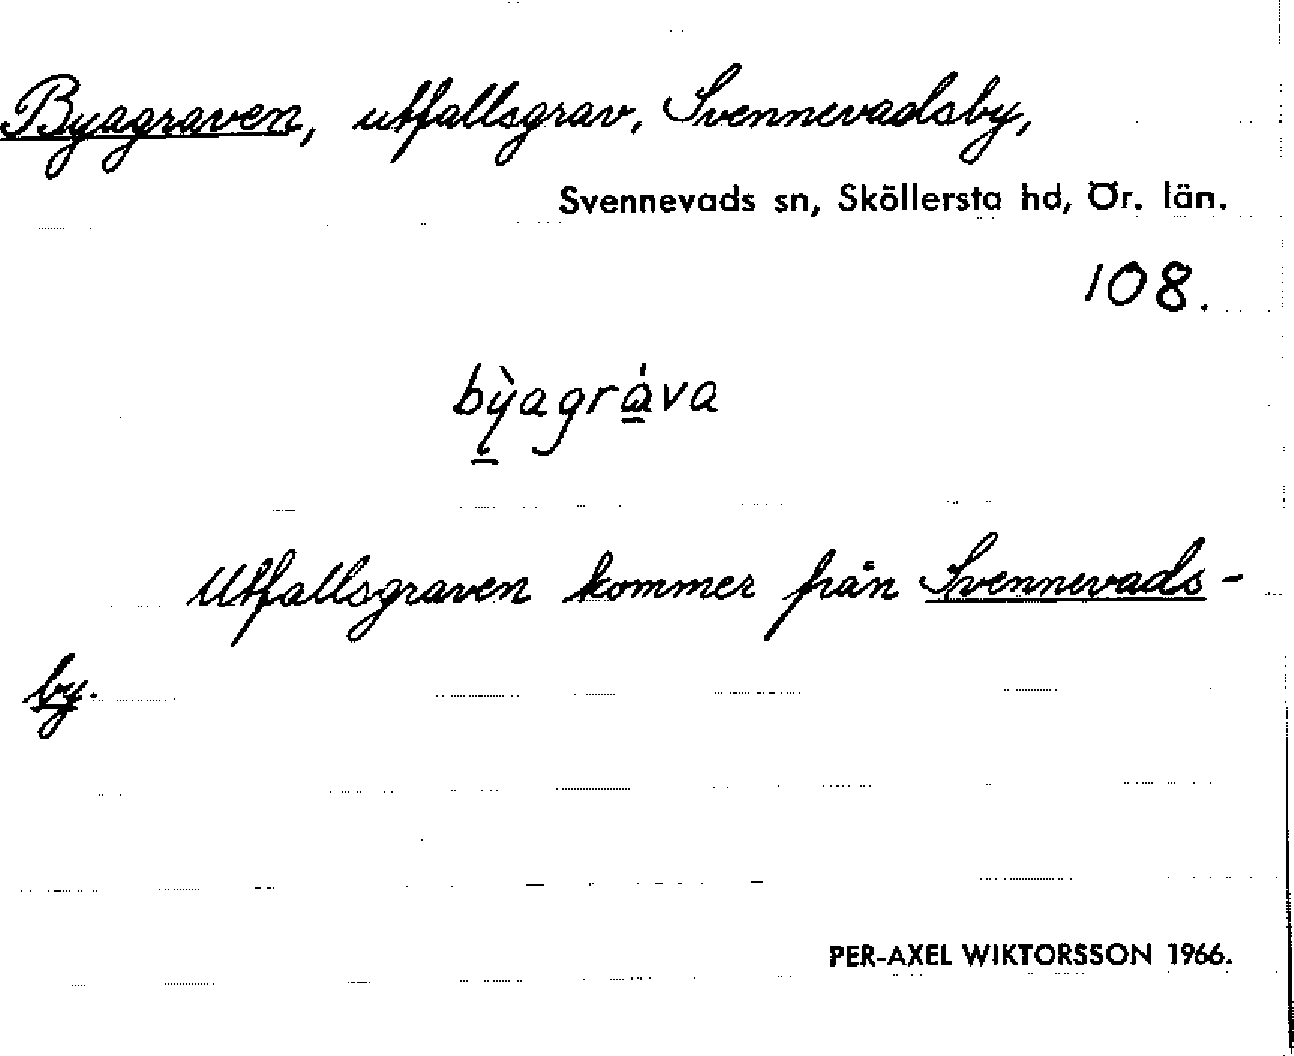 Byagraven, utfallsgrav, Svennevadsby,
Svennevads sn, Sköllersta hd, Ör. län.
108.
bỳagráva
Utfallsgraven kommer från Svennevads-
by.
PER-AXEL WIKTORSSON 1966.